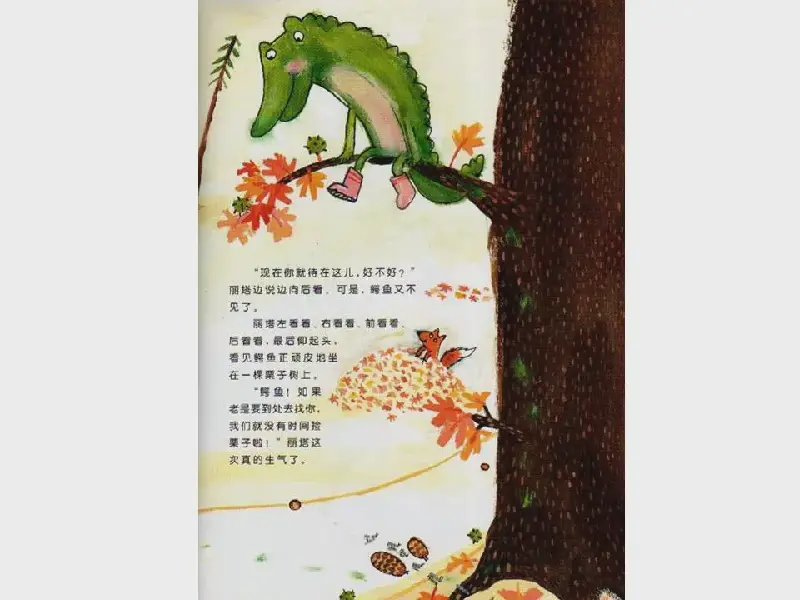 “现在你就待在这儿，好不好？”
丽塔边说边向后看，可是，鳄鱼又不
见了。
丽塔左看看、右看看、前看看、
后看看，最后仰起头，
看见鳄鱼正顽皮地坐
在一棵栗子树上。
“鳄鱼！如果
老是要到处去找你，
我们就没有时间捡
栗子啦！”丽塔这
次真的生气了。